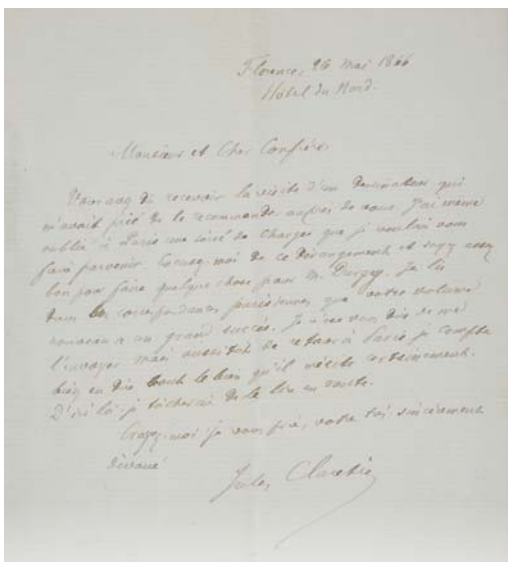 Florence, 26 Mai 1866
Hôtel du Nord.
Monsieur et Cher Confrère
Vous avez dû recevoir la visite d'un dessinateur qui
m'avait prié de le recommander auprès de vous. J'ai même
oublié à Paris une série de Charges que je voulais vous
faire parvenir. Excusez-moi de ce dérangement et soyez assez
bon pour faire quelque chose pour M.  Je lis
dans les correspondances parisiennes que votre volume
nouveau a un grand succès. Je n'ose vous dire de me
l'envoyer mais aussitôt de retour à Paris je compte
bien en dire tout le bien qu'il mérite certainement.
D'ici là je tâcherai de le lire en route.
Croyez-moi je vous prie, votre très sincèrement
dévoué
Jules Claretie